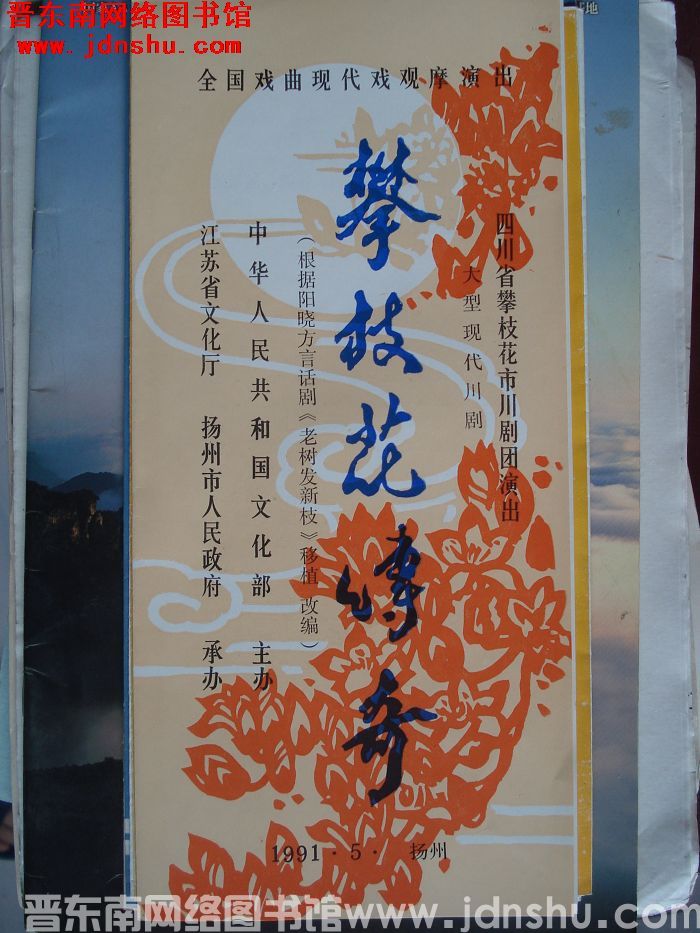 晋东南网络图书馆
www.jdnshu.com
全国戏曲现代戏观摩演出
四川省攀枝花市川剧团演出
大型现代川剧
攀枝花传奇
(根据阳晓方言话剧《老树发新枝》移植 改编)
中华人民共和国文化部 主办
江苏省文化厅 扬州市人民政府 承办
1991·5· 扬州
晋东南网络图书馆www.jdnshu.com